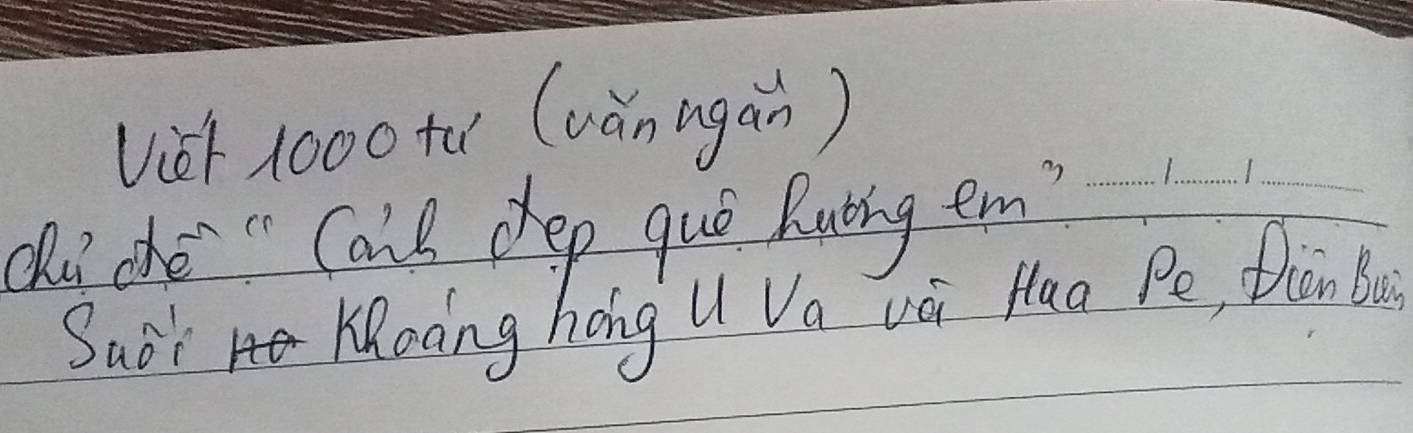 Viết 1000 từ (văn ngắn)
chủ đề "Cảnh đẹp quê hương em"
Suối Khoáng nóng U Va và Hua Pe, Điện Biên